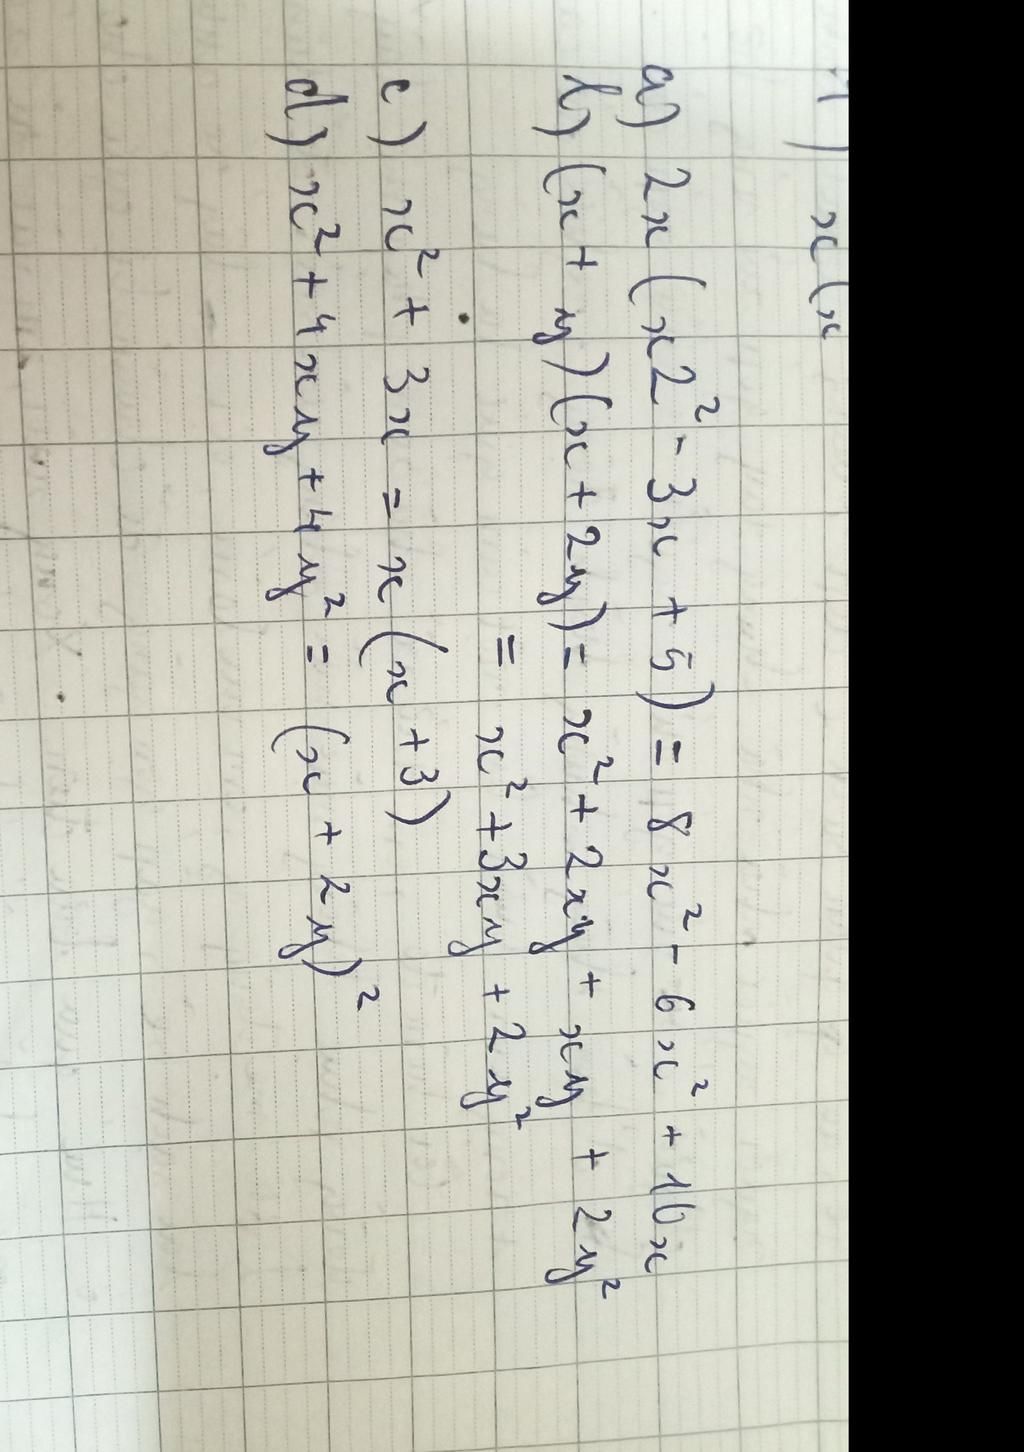 1) x(x
a) 2x(x2² - 3x + 5) = 8x² - 6x² + 10x
b) (x + y)(x + 2y) = x² + 2xy + xy + 2y²
= x² + 3xy + 2y²
c) x² + 3x = x(x + 3)
d) x² + 4xy + 4y² = (x + 2y)²